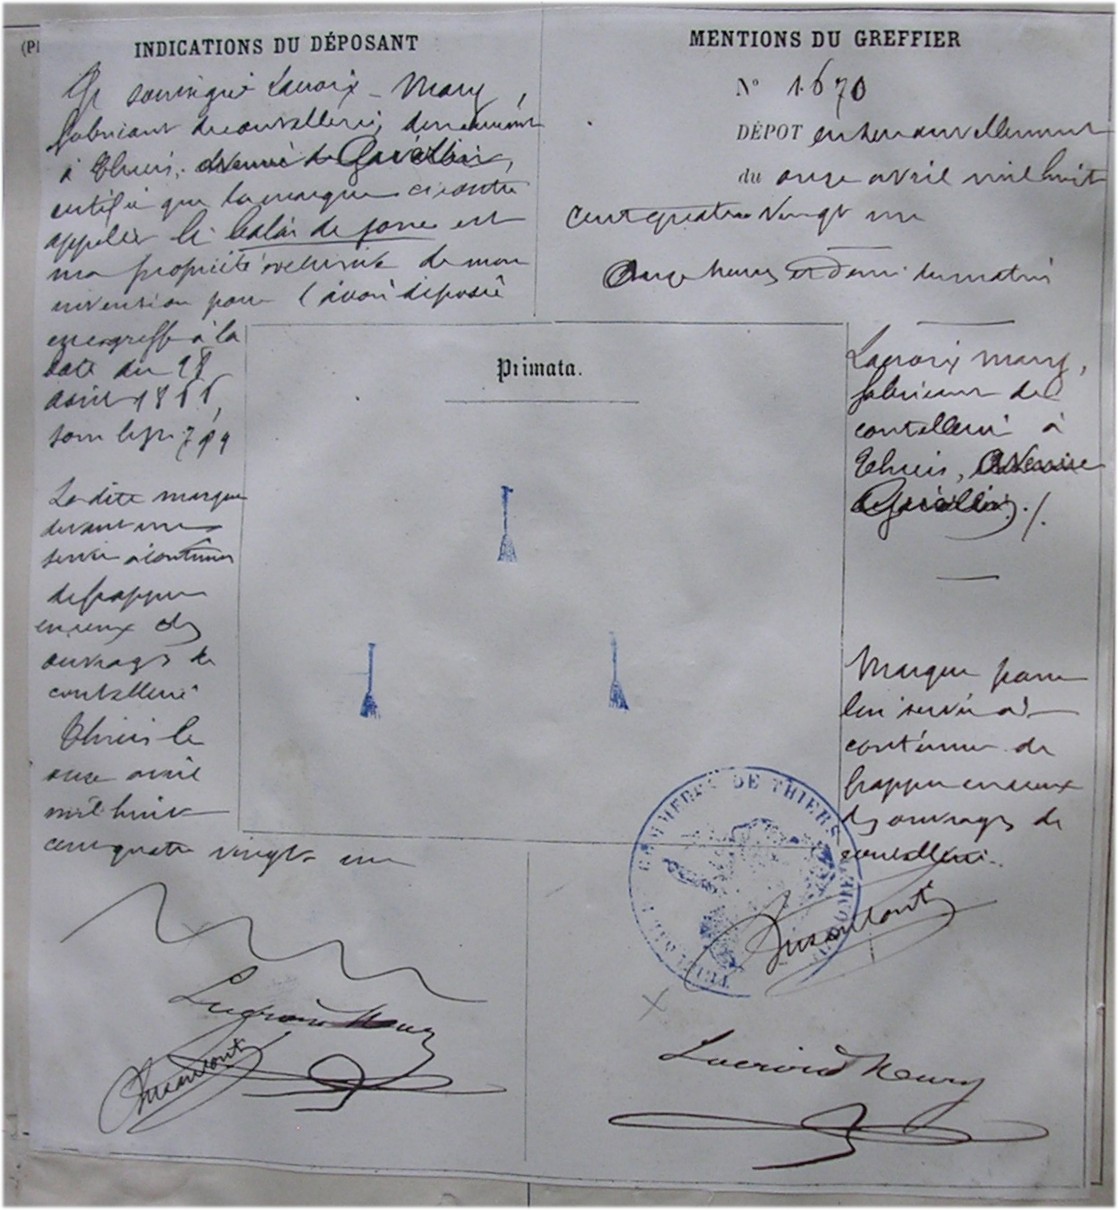 INDICATIONS DU DÉPOSANT
Je soussigné Lacroix-Mary,
fabricant de coutellerie, demeurant
à Thiers,
certifie que la marque ci contre
appelée le balai de jonc est
ma propriété exclusive de mon
invention pour l'avoir déposée
au greffe à la
date du 28
août 1866
sous le no 799
La dite marque
devant me
servir à continuer
de frapper
en creux des
ouvrages de
coutellerie
Thiers le
onze avril
mil huit
cent quatre vingt un
Lacroix Mary
MENTIONS DU GREFFIER
No 1670
DÉPOT en renouvellement
du onze avril mil huit
cent quatre vingt un
Onze heures et demi du matin
Primata.
Lacroix Mary,
fabricant de
coutellerie à
Thiers, Avenue
Marque pour
lui servir à
continuer de
frapper en creux
des ouvrages de
coutellerie.
COMMERCE DE THIERS
Lacroix Mary